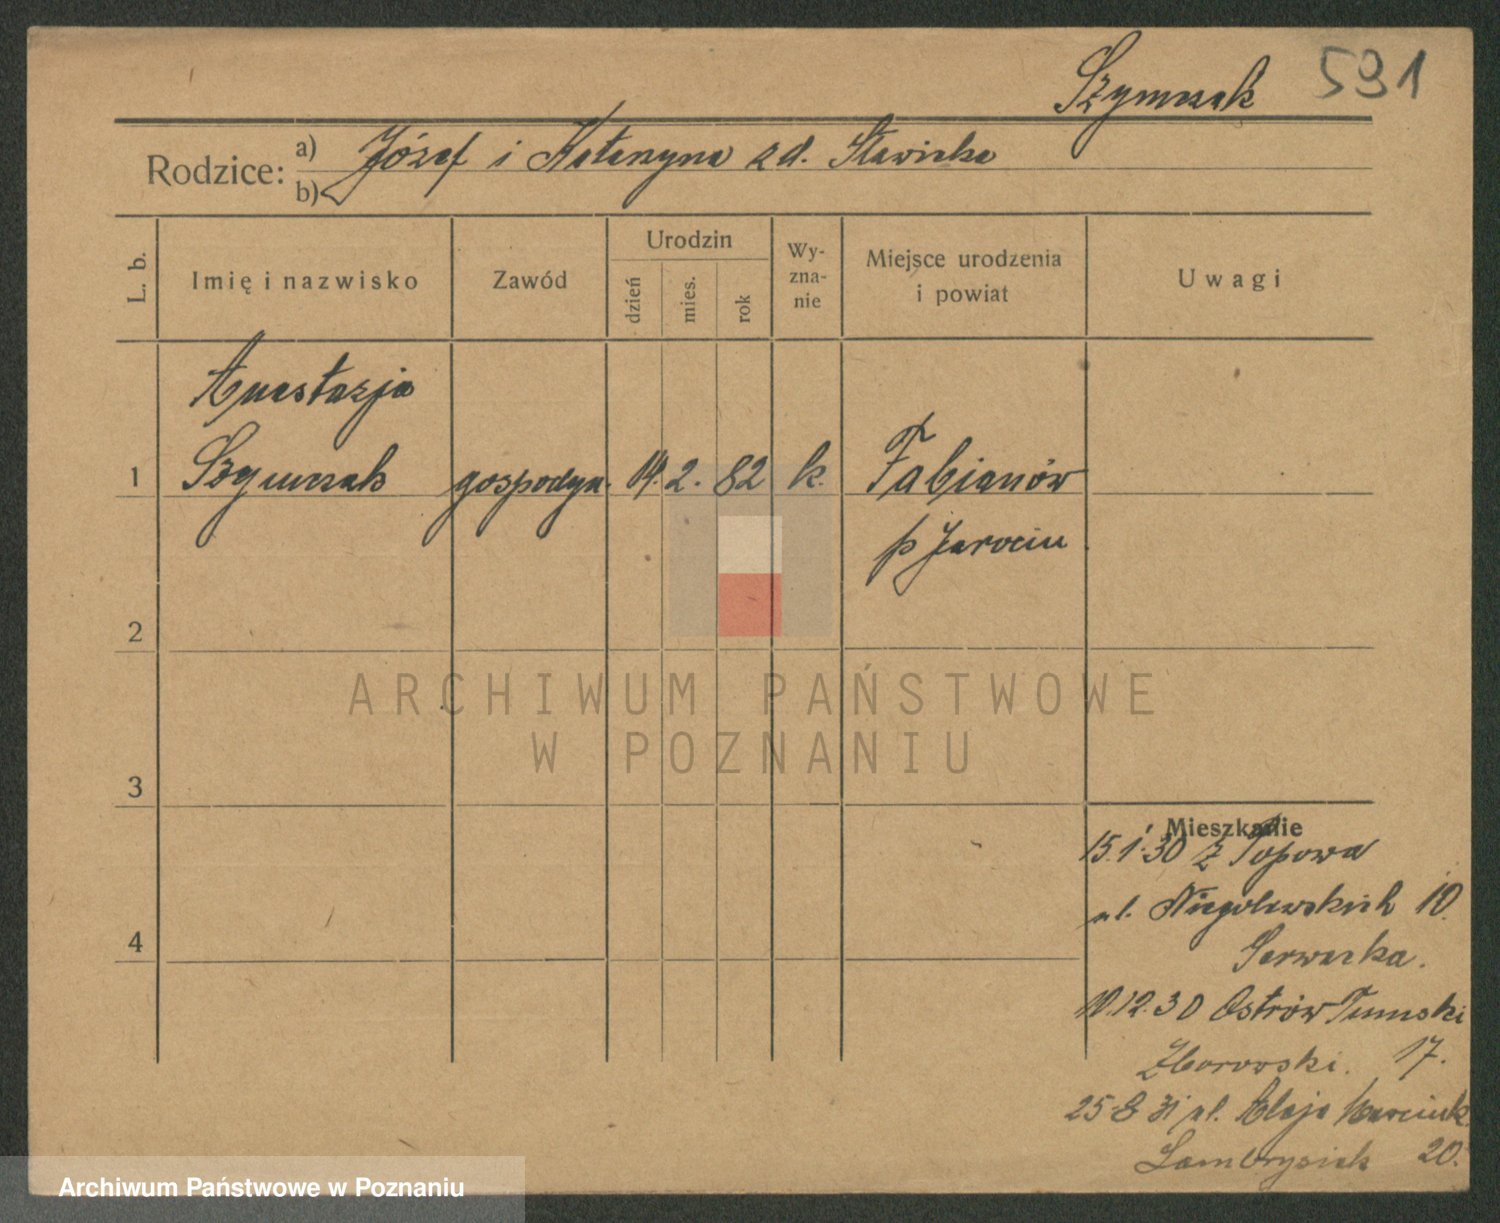 Szymczak 591
Rodzice: a) Józef i Katarzyna z d. Stawicka
b)
L. b.
Imię i nazwisko
Zawód
Urodzin
dzień
mies.
rok
Wy-
zna-
nie
Miejsce urodzenia
i powiat
Uwagi
Anastazja
1 Szymczak gospodyn. 14. 2. 82 k. Fabianów
p Jarocin
2
ARCHIWUM PAŃSTWOWE
W POZNANIU
3
Mieszkanie
15.1.30 z Popowa
ul. Niegolewskich 10.
4
10.12.30 Ostrów Tumski
Zborowski. 17.
25.8 31 ul. Aleja Marcink.
20.
Archiwum Państwowe w Poznaniu